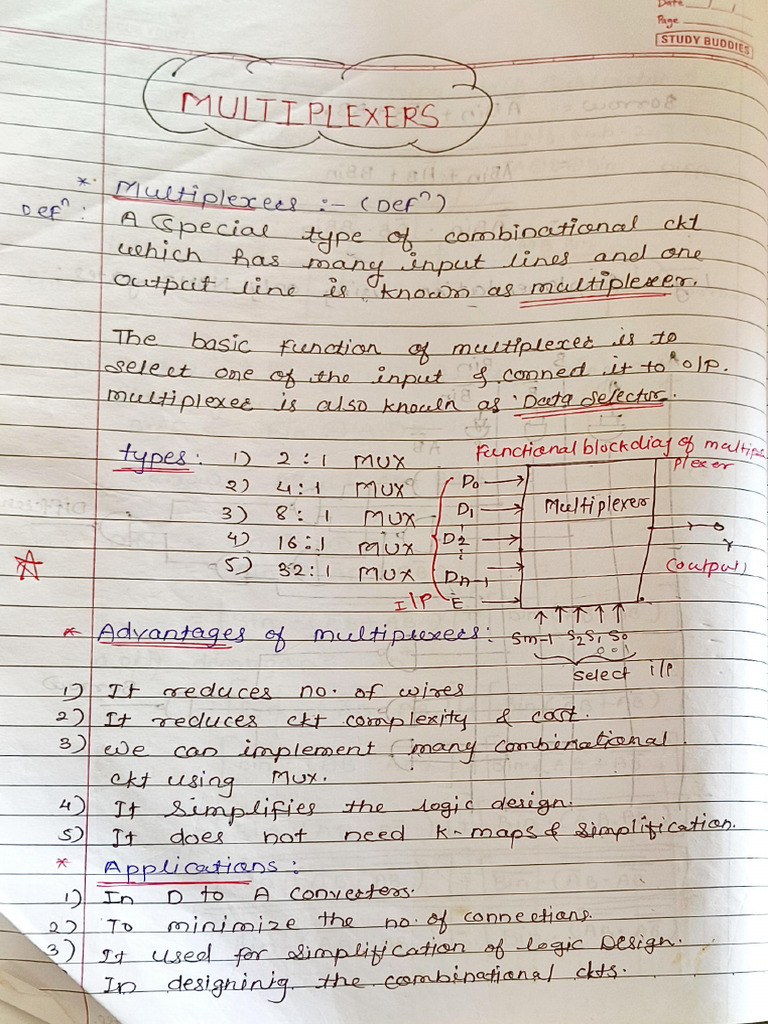 Date / /
Page
STUDY BUDDIES
MULTIPLEXERS
* Multiplexers :- (Defⁿ)
Defⁿ: A special type of combinational ckt
which has many input lines and one
output line is known as multiplexer.
The basic function of multiplexer is to
select one of the input & conned it to o/p.
multiplexer is also known as Data selector.
types: 1) 2 : 1 MUX
2) 4 : 1 MUX
3) 8 : 1 MUX
4) 16 : 1 MUX
5) 32 : 1 MUX
Functional block diag of multi
plexer
D0
D1
D2
Dn-1
E
I/P
Multiplexer
Y
(output)
Sm-1 S2 S1 S0
0 0 1
select i/p
* Advantages of multiplexers:
1) It reduces no. of wires
2) It reduces ckt complexity & cost.
3) we can implement many combinational
ckt using MUX.
4) It simplifies the logic design.
5) It does not need K-maps & simplification.
* Applications :
1) In D to A converters.
2) To minimize the no. of connections.
3) It used for simplification of logic Design.
In designinig the combinational ckts.